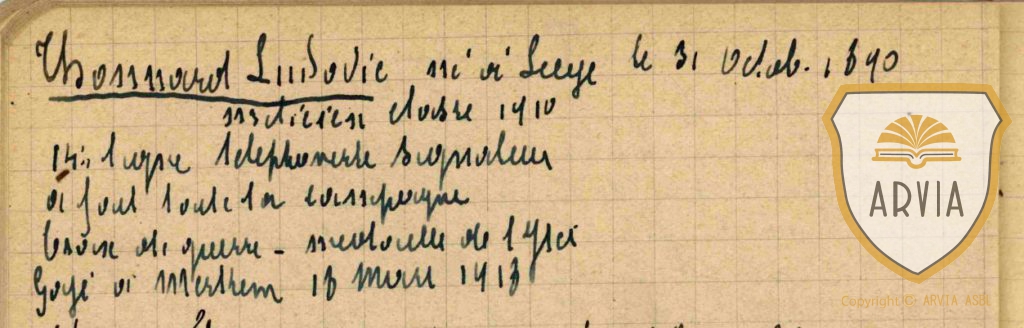 Thonnard Ludovic né à Liege le 31 Octob. 1890
milicien classe 1910
14e ligne telephoniste signaleur
a fait toute la campagne
Croix de guerre - medaille de l'Yser
Gazé à Merkem 18 Mars 1918
ARVIA
Copyright (C) ARVIA ASBL